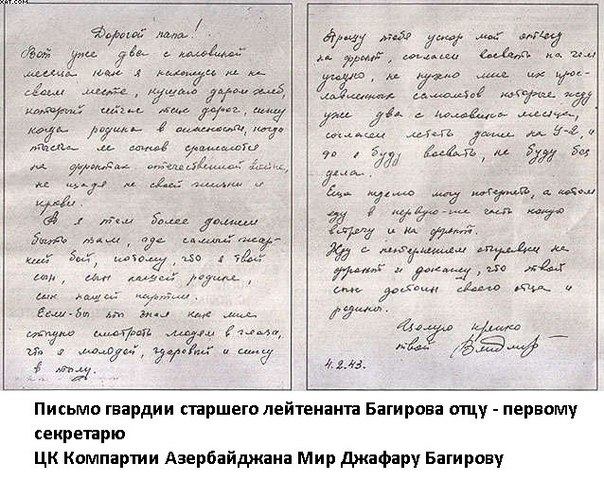 Дорогой папа!
Вот уже два с половиной
месяца как я нахожусь не на
своем месте, кушаю даром хлеб,
который сейчас так дорог, сижу
когда родина в опасности, когда
тысяча ее сынов сражаются
на фронтах отечественной войны,
не щадя не своей жизни и
крови.
А я тем более должен
быть там, где самый жар-
кий бой, потому, что я твой
сын, сын нашей родине,
сын нашей партии.
Если-бы ты знал как мне
стыдно смотреть людям в глаза,
что я молодой, здоровый и сижу
в тылу.
Прошу тебя ускор мой отъезд
на фронт, согласен воевать на чем
угодно, не нужно мне их прос-
лавленных самолетов которые жду
уже два с половина месяца,
согласен летать даже на У-2, и
до я буду воевать, не буду без
дела.
Еще неделю могу потерпеть, а потом
еду в первую-же часть какую
встречу и на фронт.
Жду с нетерпением отправки на
фронт и докажу, что твой
сын достоин своего отца и
родины.
Целую крепко
твой Владимир
4.2.43.
Письмо гвардии старшего лейтенанта Багирова отцу - первому
секретарю
ЦК Компартии Азербайджана Мир Джафару Багирову